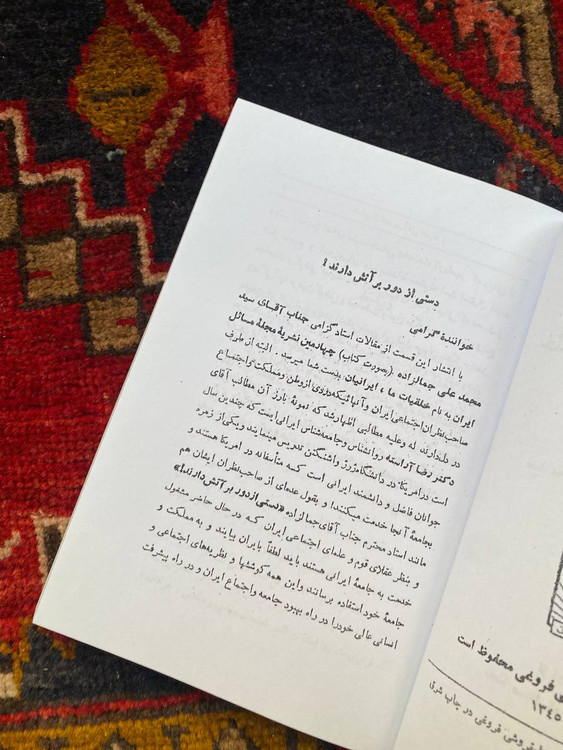 دستی از دور بر آتش دارند !
خواننده گرامی
با انتشار این قسمت از مقالات استاد گرامی جناب آقای سید
محمد علی جمالزاده (بصورت کتاب) چهارمین نشریهٔ مجلهٔ مسائل
ایران به نام خلقیات ما ، ایرانیان بدست شما میرسد . البته از طرف
صاحب‌نظران اجتماعی ایران و آنهائیکه دردی از وطن و مملکت و اجتماع
در دل دارند له وعلیه مطالبی اظهار شد که نمونهٔ بارز آن مطالب آقای
دکتر رضا آراسته روانشناس و جامعه‌شناس ایرانی است که چندین سال
است در امریکا در دانشگاه ژرژ واشنگتن تدریس مینمایند و یکی از زمره
جوانان فاضل و دانشمند ایرانی است که متأسفانه در امریکا هستند و
بجامعهٔ آنجا خدمت میکنند! و بقول عده‌ای از صاحب‌نظران ایشان هم
مانند استاد محترم جناب آقای جمالزاده «دستی از دور بر آتش دارند!»
و بنظر عقلای قوم و علمای اجتماعی ایران که در حال حاضر مشغول
خدمت به جامعهٔ ایرانی هستند باید لطفاً بایران بیایند و به مملکت و
جامعهٔ خود استفاده برسانند و این همه کوششها و نظریه‌های اجتماعی و
انسانی عالی خودرا در راه بهبود جامعه و اجتماع ایران و در راه پیشرفت
ی فروغی محفوظ است
۱۳۴۵
فروشی فروغی در چاپ شرق